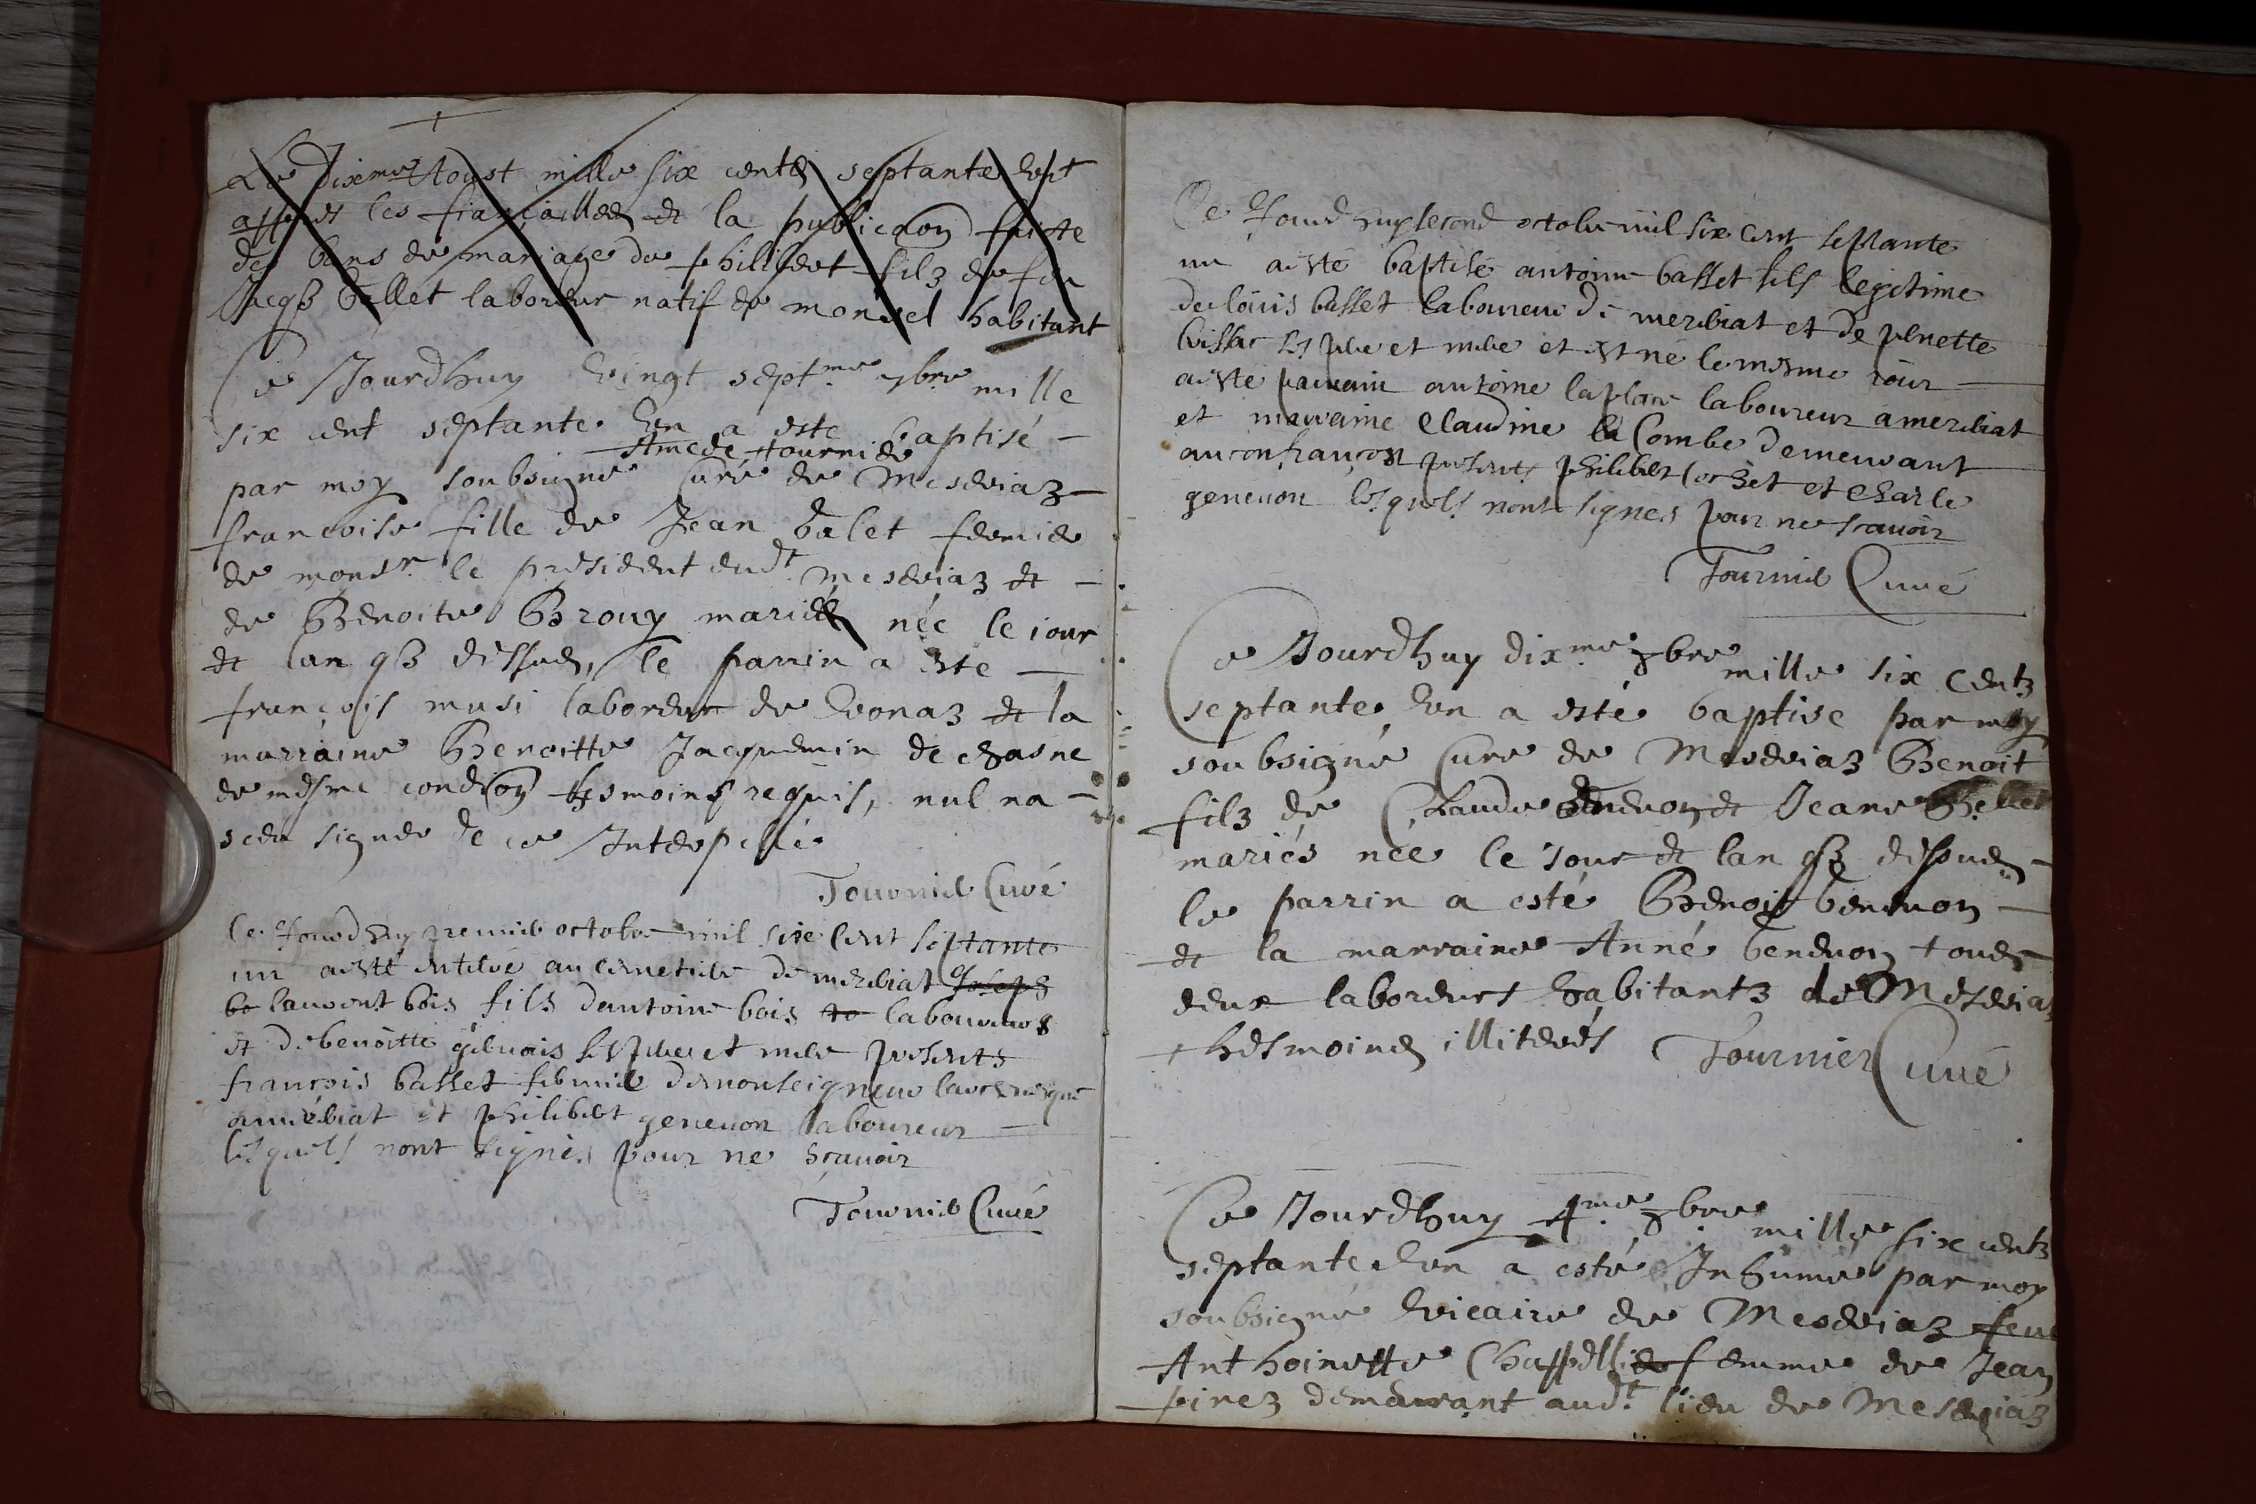 Le dixme Aoust mille six centz septante hun
appres les fiancailles et la publicaon faitte
des bans de mariage de philibert filz de feu
Jacqs bellet laboreur natif de habitant
Ce Jourdhuy vingt septme 7bre mille
six cent septante hun a este baptisé
Amede tournier
par moy soubsigné curé de Meseriaz
francoise fille de Jean balet fermier
de monsr le president dudt meseriaz et
de Benoite Brouy mariés née le iour
et lan qs dessus, le parrin a este
françois musi laboreur de vonaz et la
marraine Benoitte Jacquemin de chasne
de mesme condion thesmoins requis, nul na
sceu signer de ce Interpellé
Tournier Curé
Ce Jourdhuy premier octobre mil six cent septante
un a esté enteré au cimetiere de meziriat Joseph
bo laurent bois fils dantoine bois to laboureur
et de benoitte geruais ses pere et mere presents
francois basset fermier de monseigneur larcheuesque
a meziriat et philibert geneuon laboureur
lesquels nont signés pour ne sçauoir
Tournier Curé
Ce Jourdhuy second octobre mil six cent septante
un a esté baptisé antoine basset fils legitime
de louis basset laboureur de meziriat et de pernette
ses pere et mere et est né le mesme iour
a esté parrain antoine laplace laboureur a meziriat
et marraine Claudine la Combe demeurant
a confrançon presents philibert cochet et Charle
geneuon lesquels nont signes pour ne scauoir
Tournier Curé
Ce Jourdhuy dixme 8bre mille six centz
septante hun a esté baptise par moy
soubsigné cure de Meseriaz Benoit
filz de Claude benevon et Jeane Bellet
mariés née le iour et lan qs dessus
le parrin a esté Benoit benevon
et la marraine Anné benevon tous
deux laboreurs habitantz de Meseriaz
thesmoins illiterés Tournier Curé
Ce Jourdhuy 4me 8bre mille six centz
septante hun a esté Inhumé par moy
soubsigné vicaire de Meseriaz feue
Anthoinette Chappellier femme de Jean
pirez demeurant audt lieu de Meseriaz